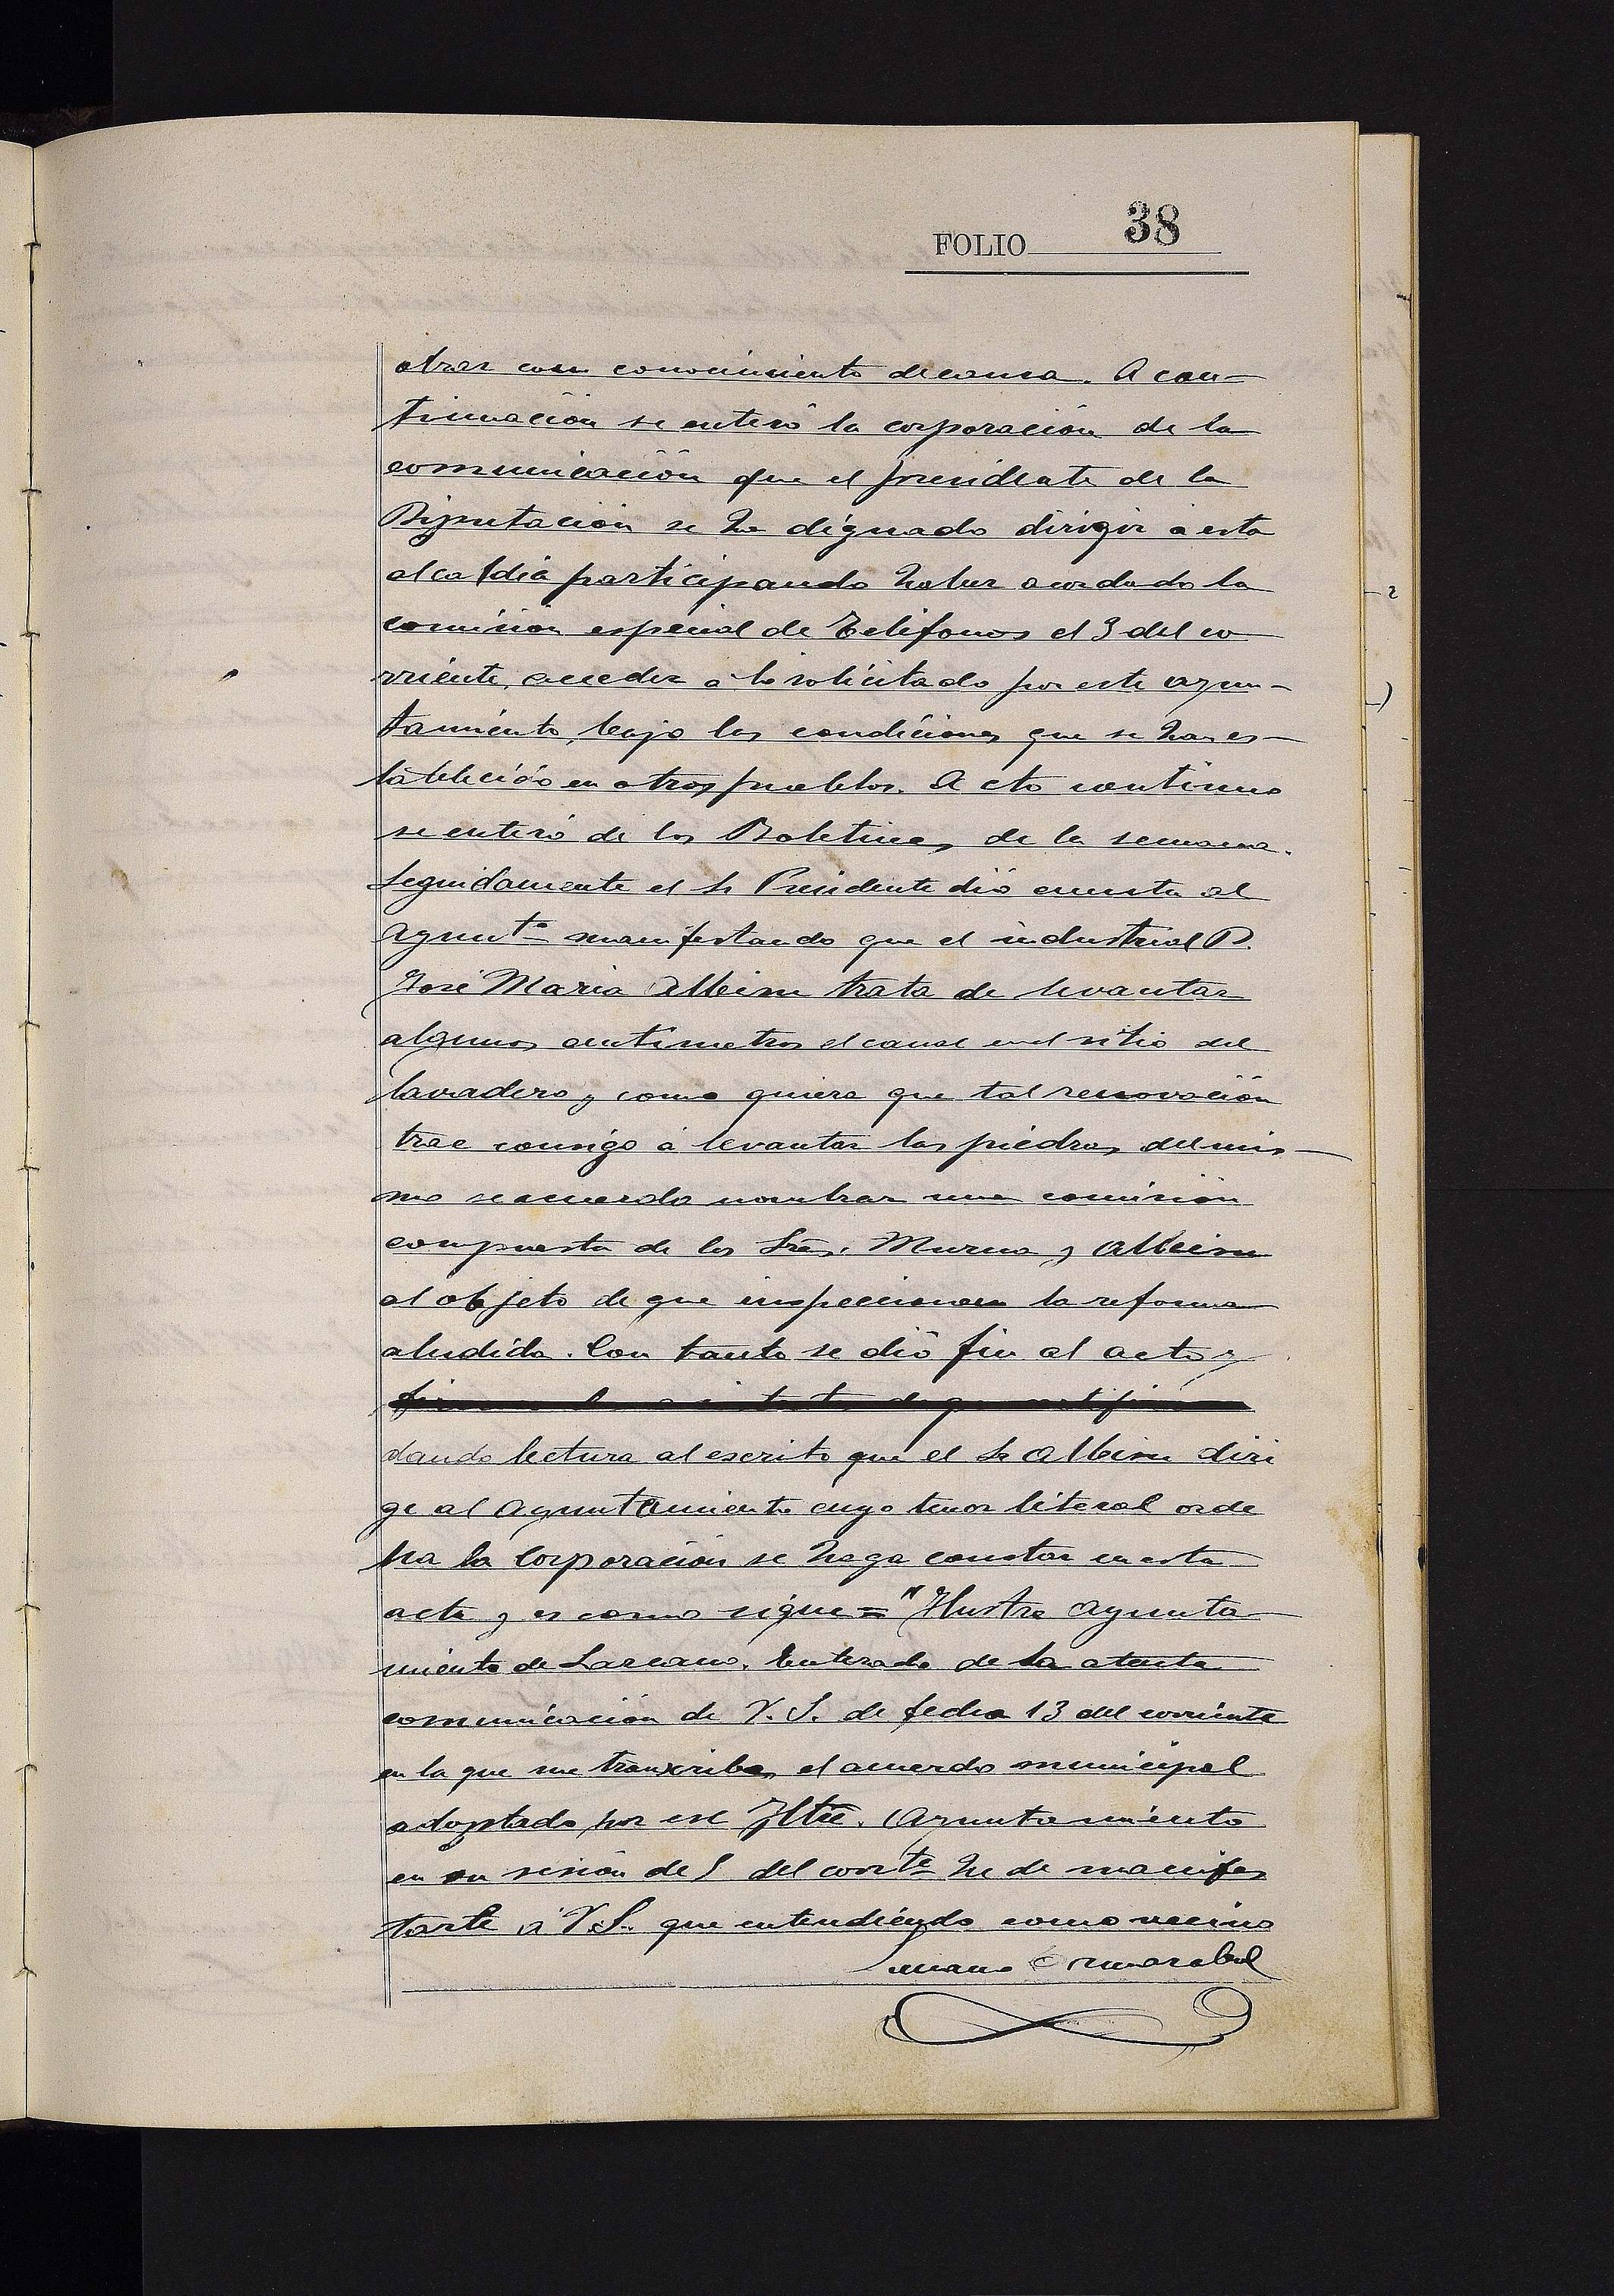 FOLIO 38
obrar con conocimiento de causa. A con-
tinuación se enteró la corporación de la
comunicación que el presidente de la
Diputación se ha dignado dirigir á esta
alcaldia participando haber acordado la
comision especial de Teléfonos el 3 del co
rriente, acceder á lo solicitado por este ayun-
tamiento, bajo las condiciones que se han es-
tablecido en otros pueblos. Acto continuo
se enteró de los Boletines de la semana.
Seguidamente el Sr Presidente dió cuenta al
Ayunt.º manifestando que el industrial D.
José Maria Albisu trata de levantar
algunos centimetros el canal en el sitio del
lavadero y como quiera que tal renovación
trae consigo á levantar las piedras del mis-
mo se acuerda nombrar una comisión
compuesta de los Sres. Murua y Albisu
al objeto de que inspeccionen la reforma
aludida. Con tanto se dió fin al acto y
dando lectura al escrito que el Sr Albisu diri
ge al Ayuntamiento cuyo tenor literal orde
na la Corporación se haga constar en esta
acta y es como sigue = "Ilustre Ayunta
miento de Lazcano. Enterado de la atenta
comunicación de V. S. de fecha 13 del corriente
en la que me transcribe el acuerdo municipal
adoptado por ese Iltre. Ayuntamiento
en su sesión de 5 del corrte he de manifes
tarle á V.S. que entendiendo como vecino